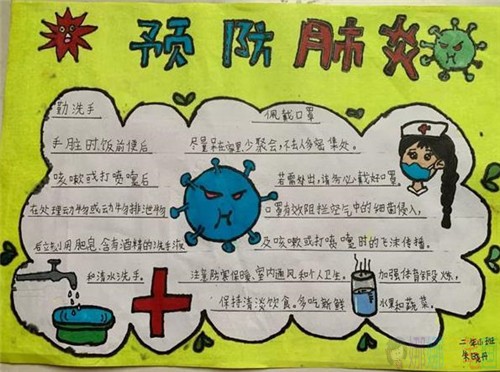 预防肺炎
勤洗手
佩戴口罩
手脏时、饭前便后
尽量呆在家里,少聚会,不去人多密集处。
咳嗽或打喷嚏后
若需外出,请务必戴好口罩。
在处理动物或动物排泄物
口罩有效阻拦空气中的细菌侵入,
后立刻用肥皂,含有酒精的洗手液
及咳嗽或打喷嚏时的飞沫传播。
和清水洗手。
注意防寒保暖、室内通风和个人卫生。加强体育锻炼,
保持清淡饮食。多吃新鲜水果和蔬菜。